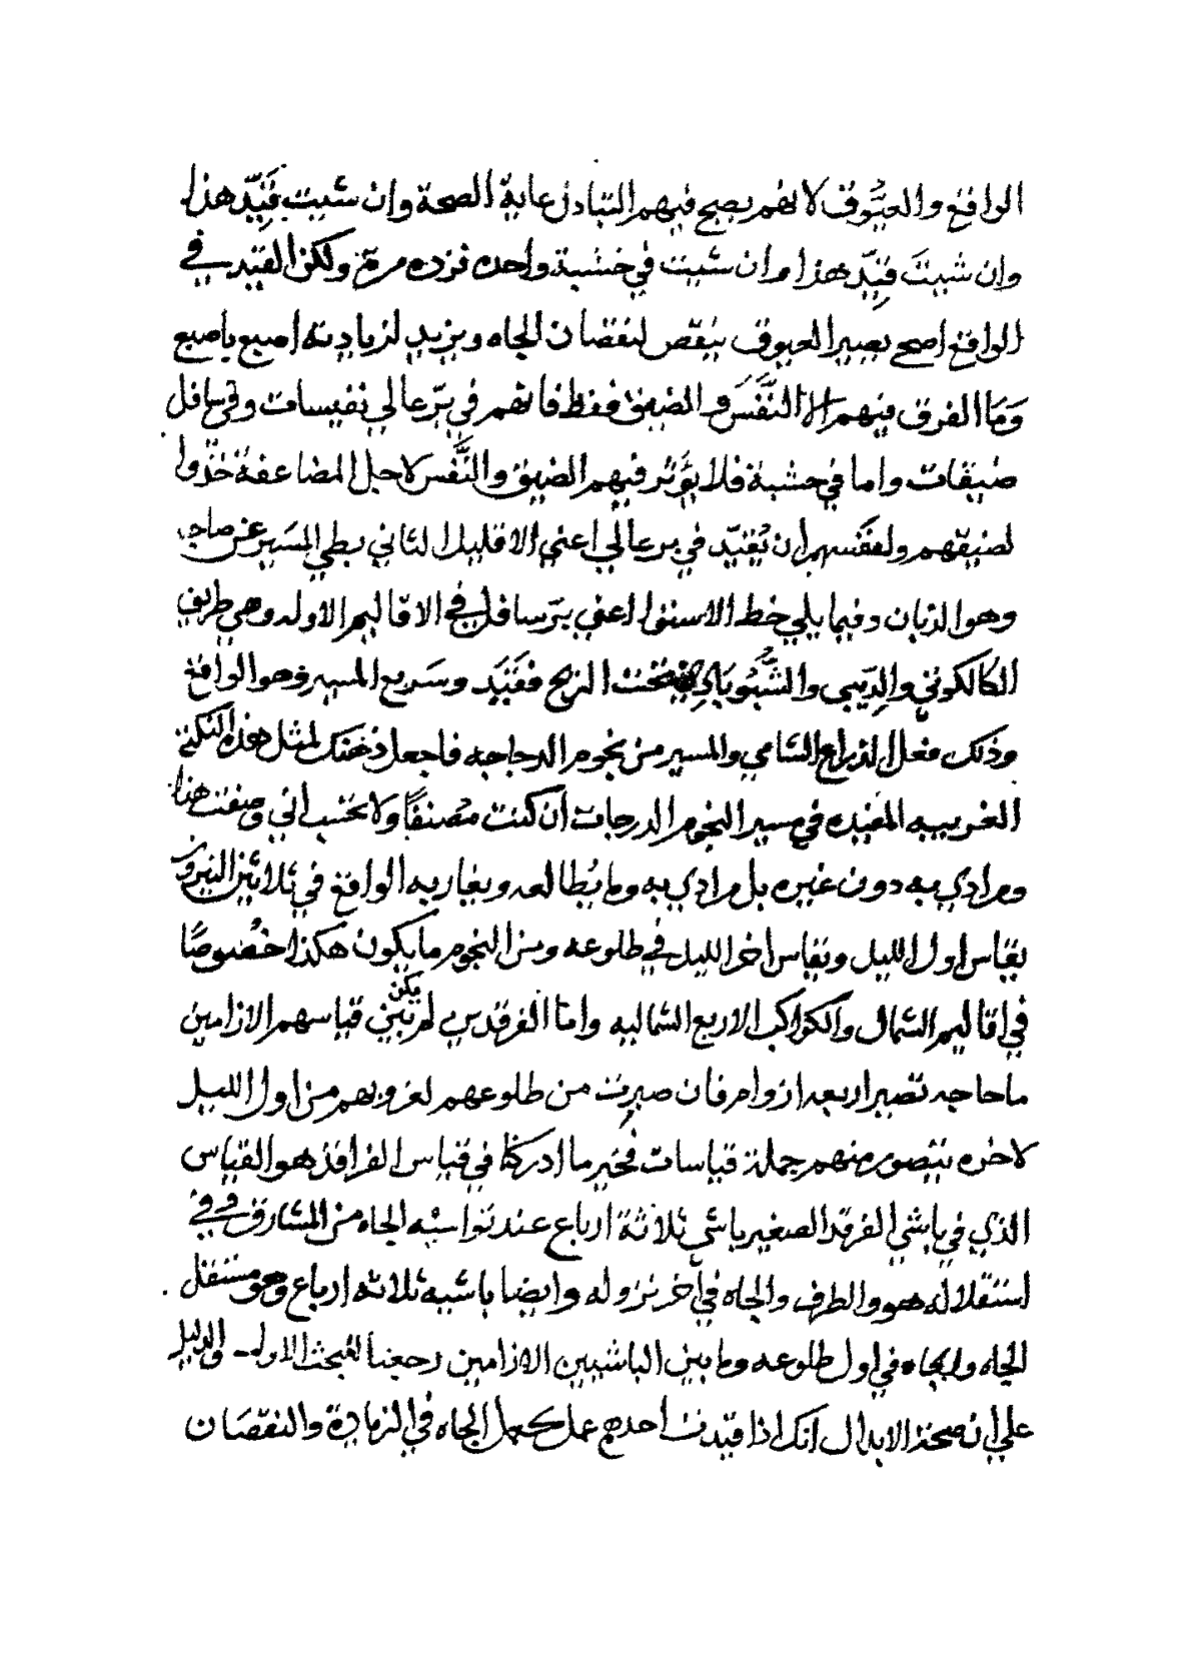 الواقع والعيُّوق لا نهم يصح فيهم التبادل غاية الصحة وان شيت قَيِّد هذا
وان شيتَ قيِّد هذا وان شيت في خشبة واحده فرده مرة ولكن القيد في
الواقع اصح يصير العيوق ينقص لنقصان الجاه ويزيد لزيادته اصبع باصبع
وَمَا الفرق فيهم الا النَّفَس والضيق فقط فانهم في برّ عالي نفيسات وفي سافل
ضيقات واما في خشبة فلا يؤثر فيهم الضيق والنَّفس لاجل المضاعفة خذوا
لضيقهم ولنفسهم ان تُقيّد في بر عالي اعني الاقليل الثاني بطي المسير عن صاحبه
وهو الذبان وفيما يلي خط الاستوا اعني برّ سافل في الاقاليم الاوله وهي طريق
الكالكوني والدِّيبي والشُّيُوبَادِي تحت الريح فقَيِّد وسَريع المسير وهو الواقع
وذلك فعل الذراع الشامي والمسير من نجوم الدجاجه فاجعل ذهنك لمثل هذه النكته
الغريبه المفيده في مسير النجوم الدرجات ان كنت مصنفًا ولا تحسب اني وصفت هذا
ومرادي به دون غيره بل مرادي به وما يُطالعه ويغاربه الواقع في ثلاثين النيروز
يقاس اول الليل ويقاس اخر الليل في طلوعه ومن النجوم ما يكون هكذا خصُوصًا
في اقاليم الشمال والكواكب الاربع الشماليه واما الفرقدين لم يكن تبين قياسهم الا زامين
ما حاجه تصير اربعه ازوام فان صبرت من طلوعهم لغروبهم من اول الليل
لاخره يتصور منهم جملة قياسات فخير ما ادركنا في قياس الفراقد هو القياس
الذي في باشي الفرقد الصغير باشي ثلاثة ارباع عند تواسيه الجاه من المشارق وفي
استقلاله هو والطرف والجاه في آخر نزوله وايضا باشيه ثلاثه ارباع وهو مستقل
الجاه والجاه في اول طلوعه وما بين الباشيين الا زامين رجعنا للبحث الاول والدليل
علي ان صحة الابدال انك اذا قيدت احدهم عمل كعمل الجاه في الزيادة والنقصان